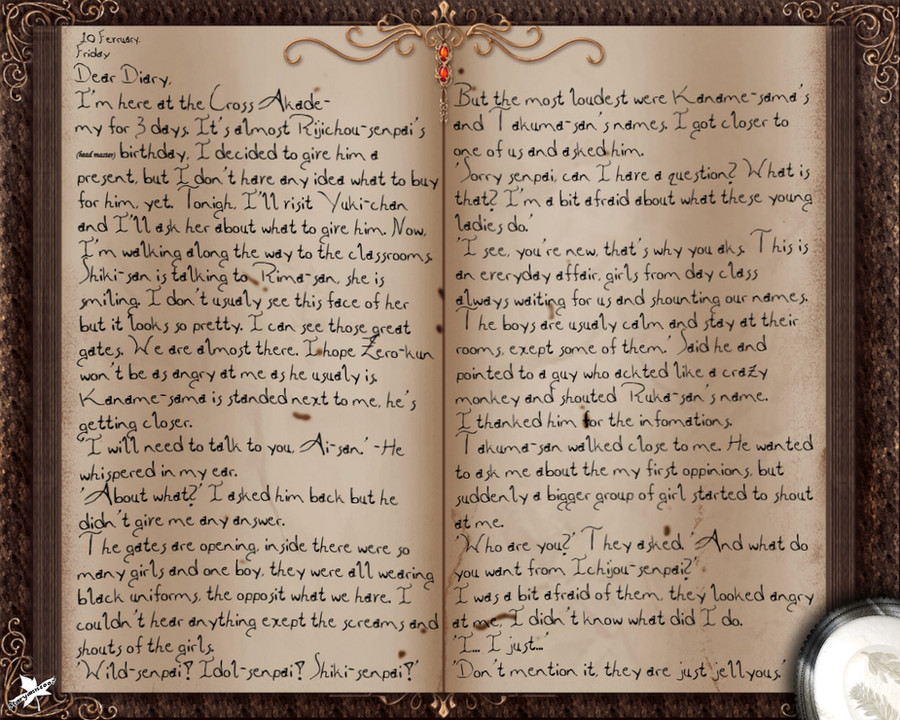 10 Ferruary.
Friday
Dear Diary,
I'm here at the Cross Akade-
my for 3 days. It's almost Rijichou-senpai's
(head master) birthday, I decided to gire him a
present, but I don't hare any idea what to buy
for him, yet. Tonigh, I'll risit Yuki-chan
and I'll ask her about what to gire him. Now,
I'm walking along the way to the classrooms.
Shiki-san is talking to Rima-san, she is
smiling. I don't usualy see this face of her
but it looks so pretty. I can see those great
gates. We are almost there. I hope Zero-kun
won't be as angry at me as he usualy is.
Kaname-sama is standed next to me, he's
getting closer.
'I will need to talk to you, Ai-san.' -He
whispered in my ear.
'About what?' I asked him back but he
didn't gire me any answer.
The gates are opening, inside there were so
many girls and one boy, they were all wearing
black uniforms, the opposit what we hare. I
couldn't hear anything exept the screams and
shouts of the girls.
'Wild-senpai? Idol-senpai? Shiki-senpai?'
But the most loudest were Kaname-sama's
and Takuma-san's names. I got closer to
one of us and asked him.
'Sorry senpai, can I hare a question? What is
that? I'm a bit afraid about what these young
ladies do.'
'I see, you're new, that's why you aks. This is
anereryday affair, girls from day class
always waiting for us and shounting our names.
The boys are usualy calm and stay at their
rooms, exept some of them.' Said he and
pointed to a guy who ackted like a crazy
monkey and shouted Ruka-san's name.
I thanked him for the infomations.
Takuma-san walked close to me. He wanted
to ask me about the my first oppinions, but
suddenly a bigger group of girl started to shout
at me.
'Who are you?' They asked. 'And what do
you want from Ichijou-senpai?'
I was a bit afraid of them, they looked angry
at me, I didn't know what did I do.
'I... I just...'
'Don't mention it, they are just jellyous.'